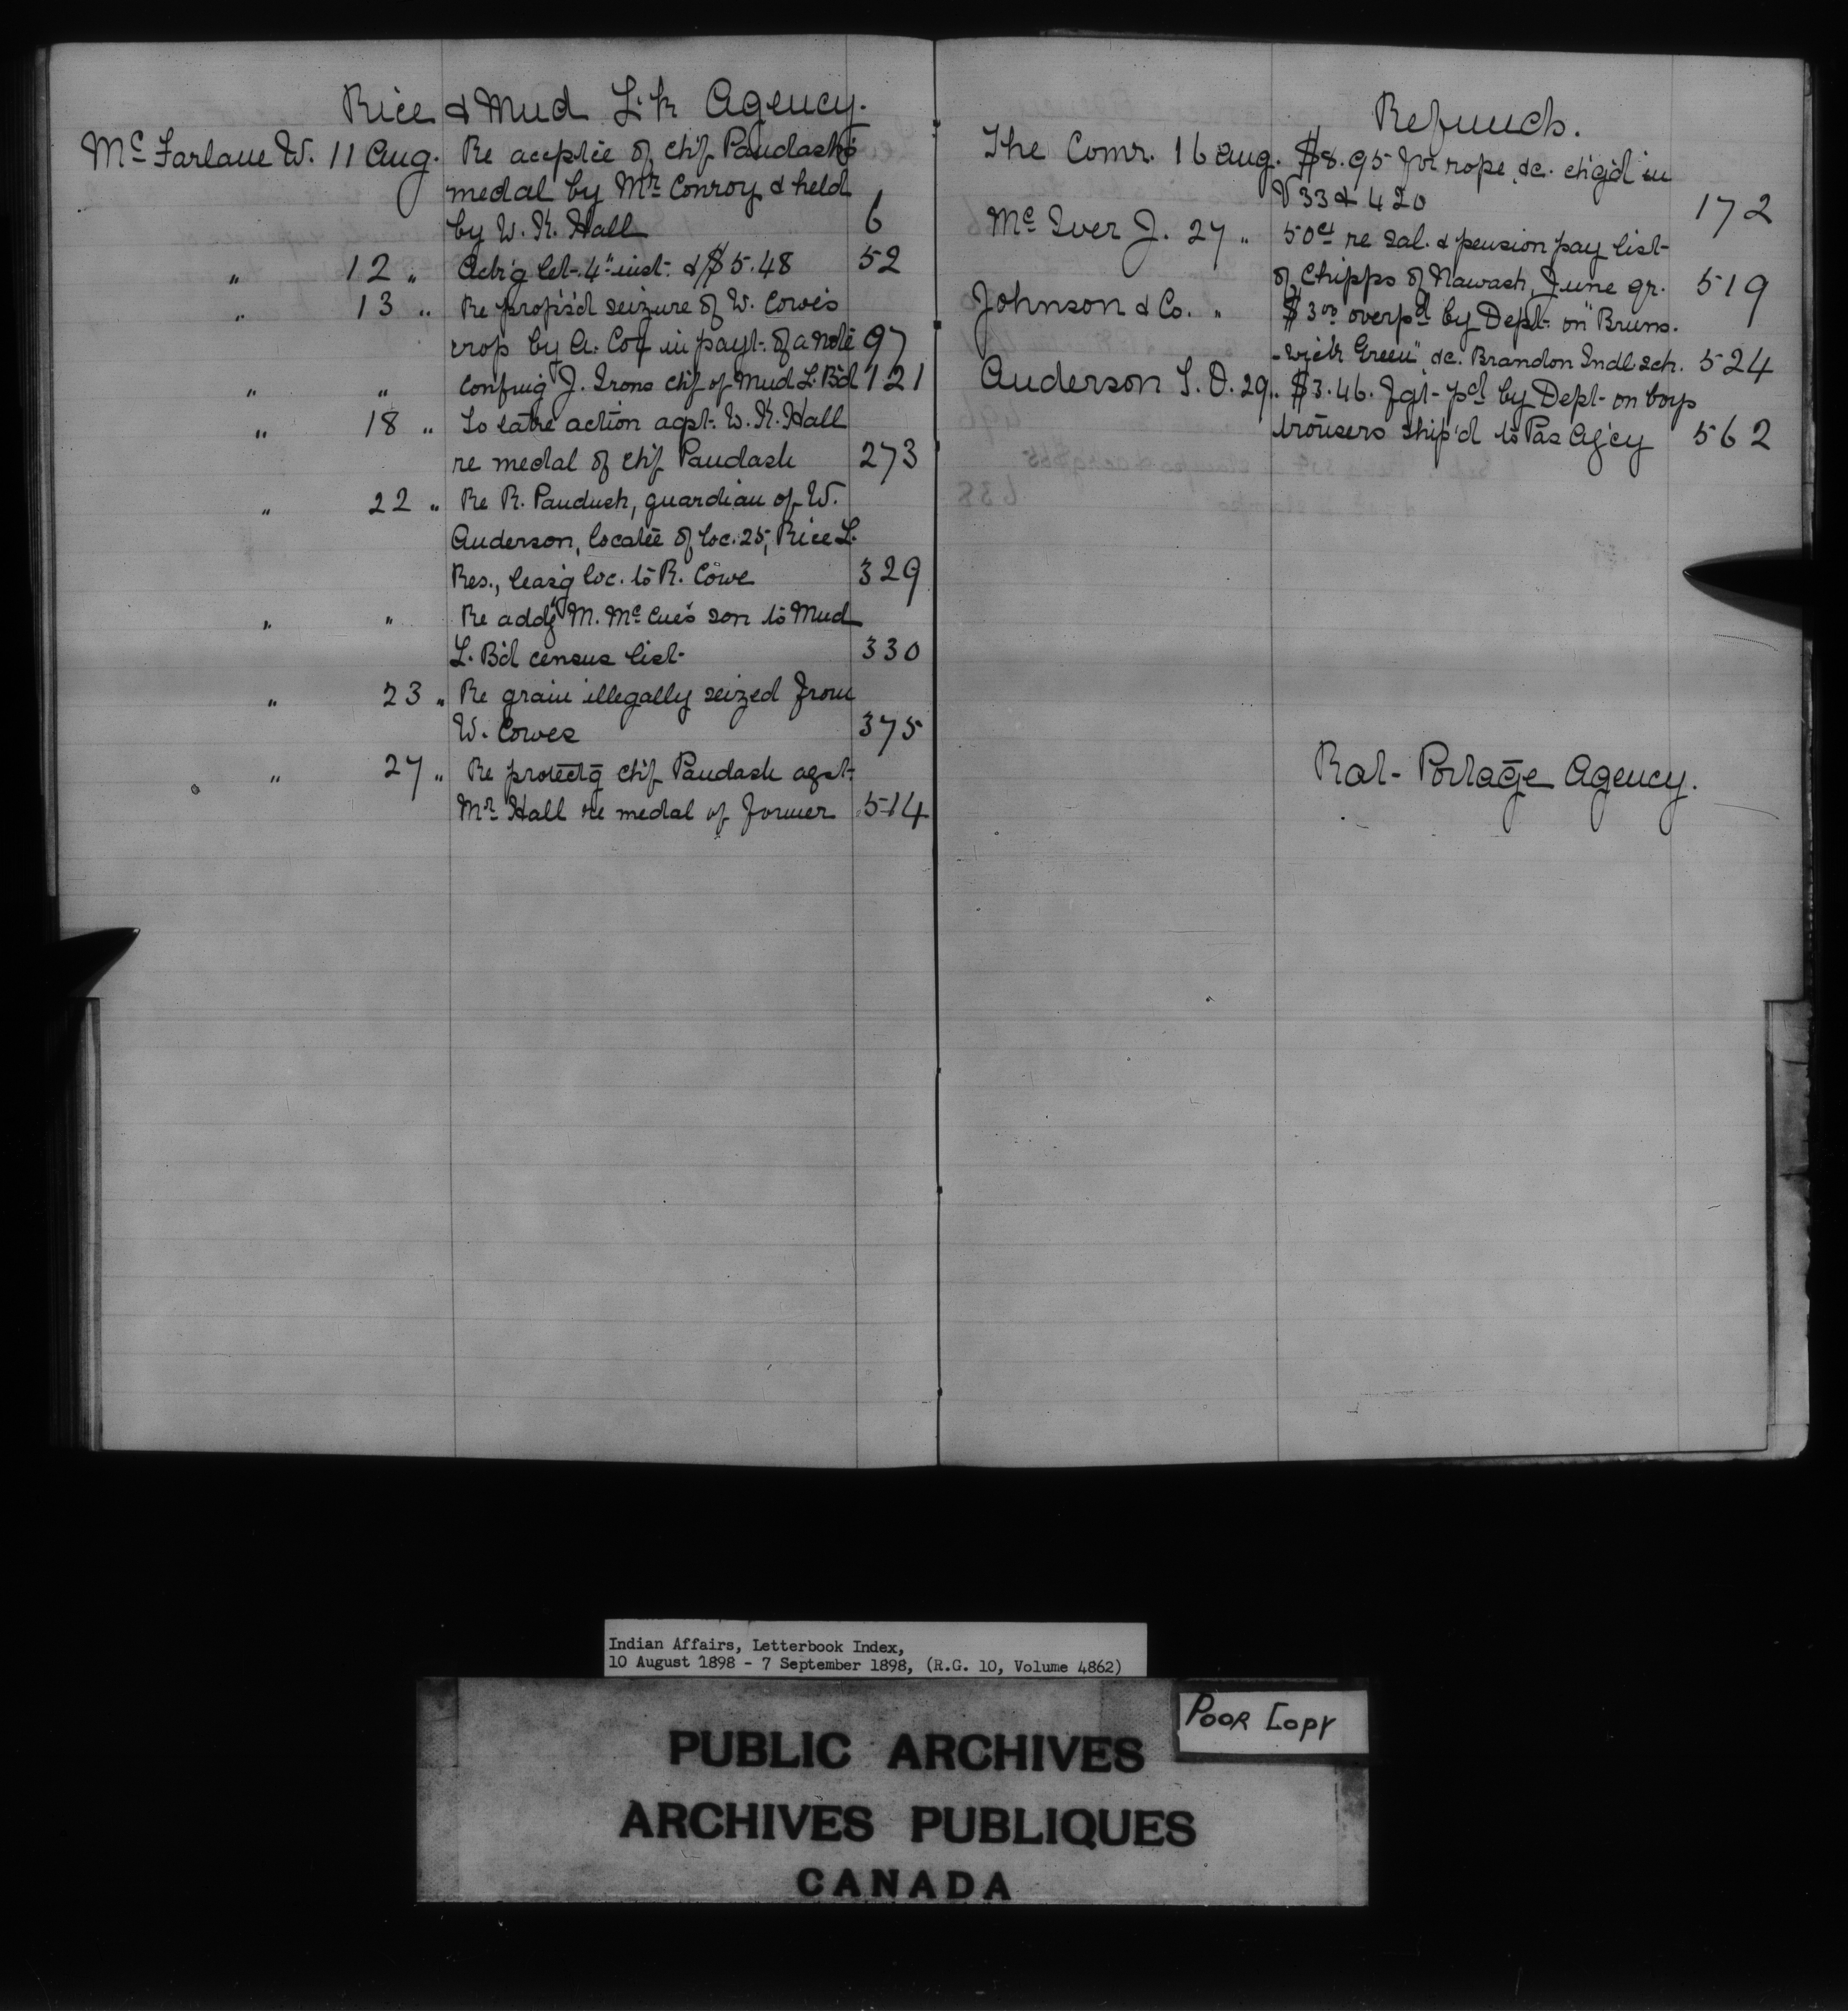 Rice & Mud L'k Agency.
McFarlane W. 11 Aug. Re accpt'ce of ch'f Paudash's
medal by Mr Conroy & held
by W. K. Hall 6
" 12 " Ack'g let. 4" inst. & $5.48 52
" 13 " Re prop's'd seizure of W. Cowe's
crop by A. Coy in payt. of a note 97
" " Confirg J. Irons ch'f of Mud L. B'd 121
" 18 " To take action agst. W. K. Hall
re medal of ch'f Paudash 273
" 22 " Re R. Paudush, guardian of W.
Anderson, locatee of loc. 25, Rice L.
Res., leas'g loc. to R. Cowe 329
" " Re addg M. McCue's son to Mud
L. B'd census list. 330
" 23 " Re grain illegally seized from
W. Cowes 375
" 27 " Re protectg ch'f Paudash agst.
Mr Hall re medal of former 514
Refunds.
The Comr. 16 Aug. $8.95 for rope &c. ch'g'd in
V 33 & 420 172
McIver J. 27 " 50cts re sal. & pension pay list
of Chipps of Nawash, June qr. 519
Johnson & Co. " $3.00 overpd by Dept. on "Bruns-
-wick Green" &c. Brandon Indl. sch. 524
Anderson T. O. 29 " $3.46. Fgt. pd by Dept. on boys
trousers ship'd to Pas Ag'cy 562
Rat Portage Agency.
Indian Affairs, Letterbook Index,
10 August 1898 - 7 September 1898, (R.G. 10, Volume 4862)
Poor Copy
PUBLIC ARCHIVES
ARCHIVES PUBLIQUES
CANADA